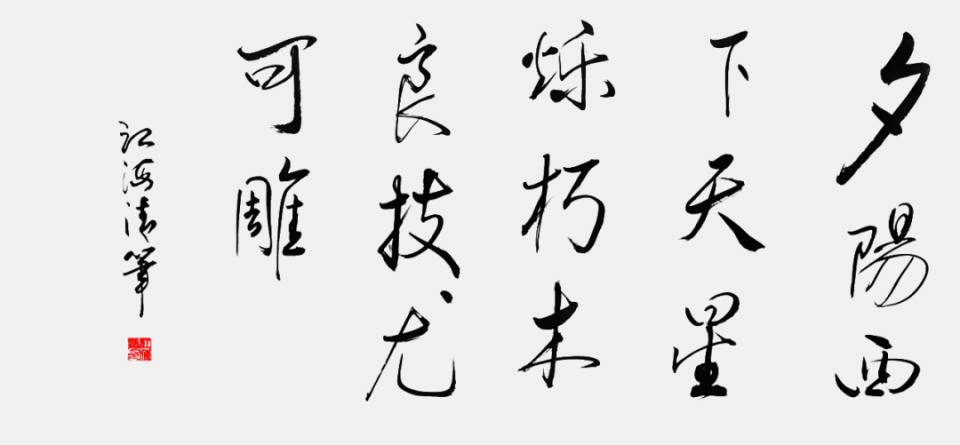 夕陽西
下天星
烁朽木
良技尤
可雕
江海清筆